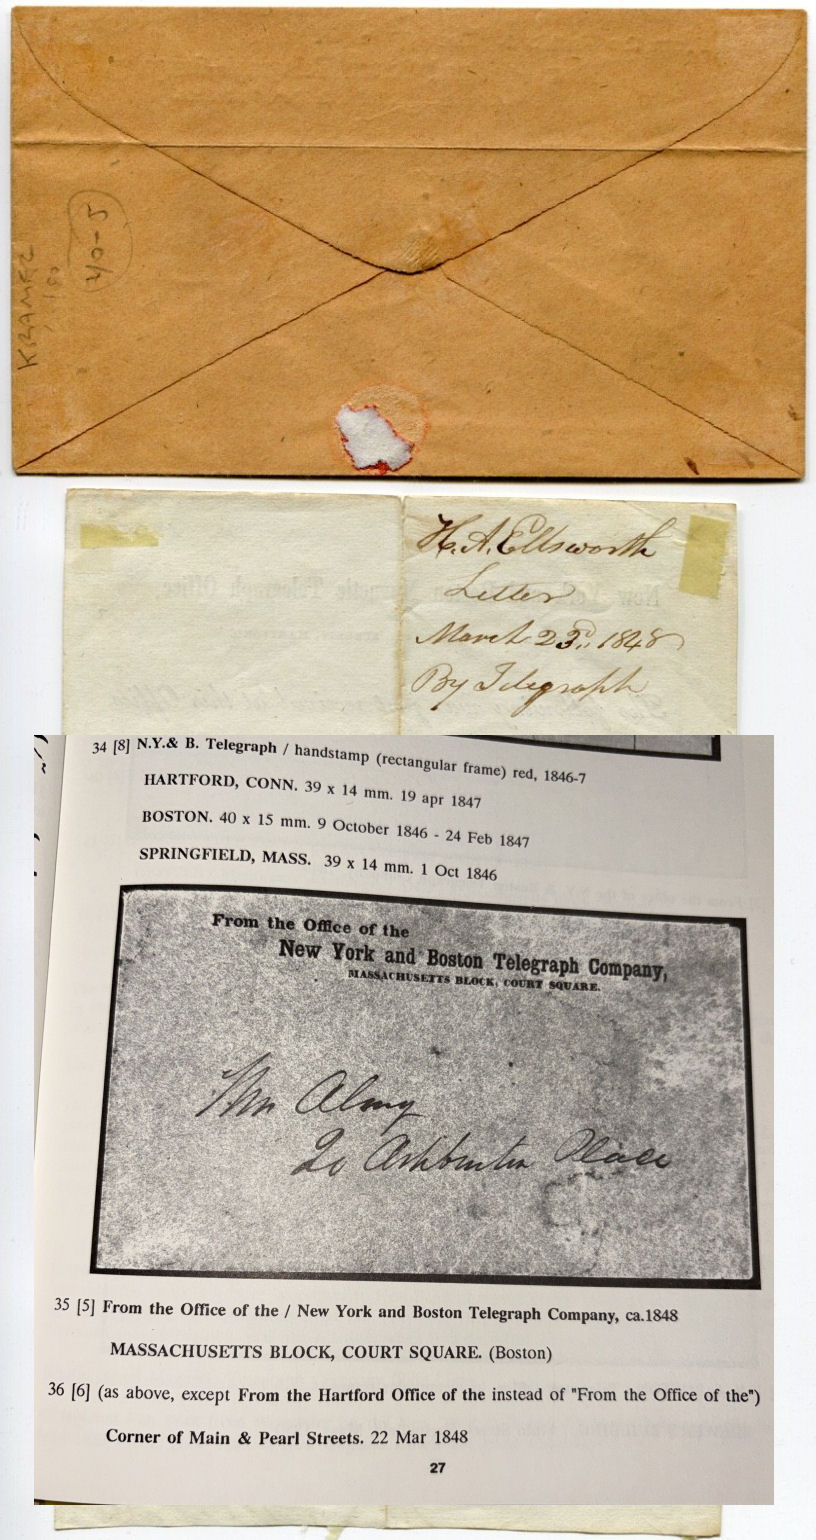 KRAMER
100
40-5
H. A. Ellsworth
Letter
March 23d, 1848
By Telegraph
34 [8] N.Y.& B. Telegraph / handstamp (rectangular frame) red, 1846-7
HARTFORD, CONN. 39 x 14 mm. 19 apr 1847
BOSTON. 40 x 15 mm. 9 October 1846 - 24 Feb 1847
SPRINGFIELD, MASS. 39 x 14 mm. 1 Oct 1846
From the Office of the
New York and Boston Telegraph Company,
MASSACHUSETTS BLOCK, COURT SQUARE.
Almy
20 Ashburton Place
35 [5] From the Office of the / New York and Boston Telegraph Company, ca.1848
MASSACHUSETTS BLOCK, COURT SQUARE. (Boston)
36 [6] (as above, except From the Hartford Office of the instead of "From the Office of the")
Corner of Main & Pearl Streets. 22 Mar 1848
27